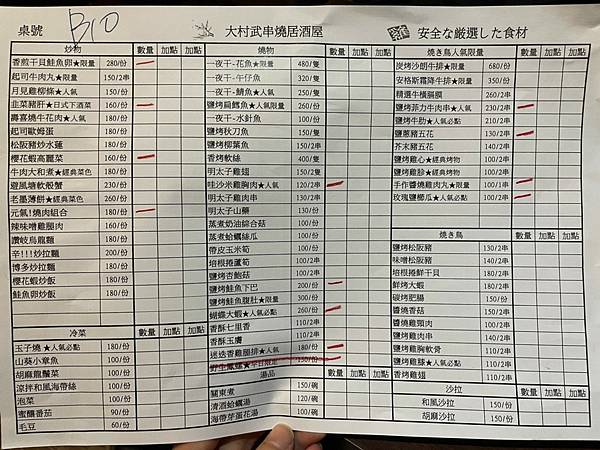 桌號 B10 大村武串燒居酒屋 安全な厳選した食材
炒物 數量 加點 加點
香煎干貝鮭魚卵★限量 280/份
起司牛肉丸★限量 150/2串
月見雞柳條★人氣 150/份
韭菜豬肝★日式下酒菜 160/份
壽喜燒牛花肉★人氣 180/份
起司歐姆蛋 180/份
松阪豬炒水蓮 180/份
櫻花蝦高麗菜 160/份
牛肉大和煮★經典菜色 180/份
避風塘軟殼蟹 230/份
老墨薄餅★經典菜色 260/份
元氣!燒肉組合 180/份
辣味噌雞腿肉 180/份
讚岐烏龍麵 180/份
辛!!!炒拉麵 200/份
博多炒拉麵 180/份
櫻花蝦炒飯 180/份
鮭魚卵炒飯 180/份
冷菜 數量 加點 加點
玉子燒▲人氣必點 180/份
山葵小章魚 100/份
胡麻龍鬚菜 100/份
涼拌和風海帶絲 100/份
泡菜 100/份
蜜釀番茄 90/份
毛豆 60/份
燒物 數量 加點 加點
一夜干-花魚★限量 480/隻
一夜干-午仔魚 320/隻
一夜干-鯖魚★人氣 250/隻
鹽烤扁鱈魚★人氣限量 260/份
一夜干-水針魚 100/份
鹽烤秋刀魚 150/隻
鹽烤柳葉魚 150/2串
香烤軟絲 400/隻
明太子雞翅 150/2隻
哇沙米雞胸肉★人氣 120/2串
明太子雞肉串 130/2串
明太子山藥 130/份
蒸煮奶油綜合菇 100/份
蒸煮蛤蠣絲瓜 100/份
帶皮玉米筍 100/份
培根捲蘆筍 100/2串
鹽烤杏鮑菇 100/份
鹽烤鮭魚下巴 200/份
鹽烤鮭魚腹肚★限量 300/份
蝴蝶大蝦★人氣 260/份
香酥七里香 100/2串
香酥玉膚 100/2串
迷迭香雞腿排★人氣 180/份
野生鳳螺★平日限定 150/份
湯品 數量 加點 加點
關東煮 150/碗
清酒蛤蠣湯 120/碗
海帶芽蛋花湯 100/碗
燒き鳥人氣限量 數量 加點 加點
炭烤沙朗牛排★限量 680/份
安格斯霜降牛排★限量 350/份
精選牛橫膈膜 260/2串
鹽烤菲力牛肉串★人氣 230/2串
鹽烤牛肋▲人氣必點 210/2串
鹽蔥豬五花 130/2串
芥末豬五花 140/2串
鹽烤雞心★經典烤物 100/2串
鹽烤雞胗★經典烤物 100/2串
手作醬燒雞肉丸★限量 100/1串
玫瑰鹽櫛瓜▲人氣必點 100/2串
燒き鳥 數量 加點 加點
鹽烤松阪豬 130/2串
味噌松阪豬 140/2串
培根捲鮮干貝 180/2串
鮮烤大蝦 180/2串
碳烤肥腸 150/份
醬燒香菇 150/2串
醬燒雞頸肉 100/2串
鹽烤雞肉串 140/2串
鹽烤雞胸軟骨 110/2串
鹽烤雞膝▲人氣必點 110/2串
香烤雞翅 110/2串
沙拉 數量 加點 加點
和風沙拉 150/份
胡麻沙拉 150/份